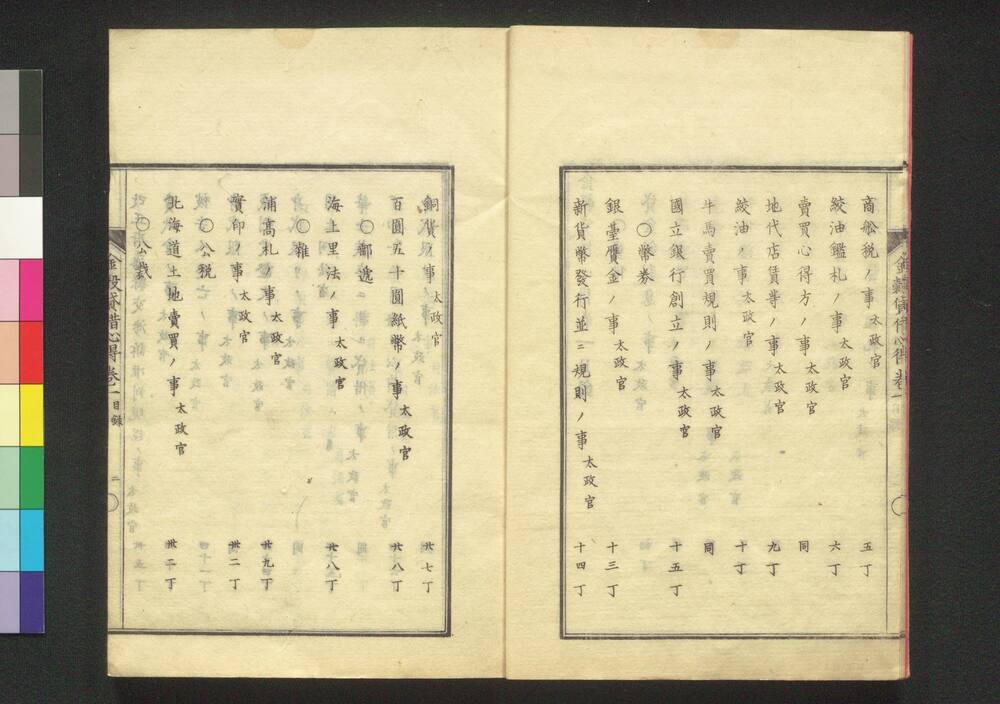 商舩税ノ事 太政官 五丁
絞油鑑札ノ事 太政官 六丁
賣買心得方ノ事 太政官 同
地代店賃等ノ事 太政官 九丁
絞油ノ事 太政官 十丁
牛馬賣買規則ノ事 太政官 同
國立銀行創立ノ事 太政官 十五丁
〇幣券
銀臺贋金ノ事 太政官 十三丁
新貨幣發行並ニ規則ノ事 太政官 十四丁
銅貨ノ事 太政官 廿七丁
百圓五十圓紙幣ノ事 太政官 廿八丁
〇郵逓
海上里法ノ事 太政官 廿八丁
〇雜
浦高札ノ事 太政官 廿九丁
實印ノ事 太政官 卅二丁
〇公税
北海道土地賣買ノ事 太政官 卅二丁
〇公裁
金穀貸借心得 卷一 目録 二